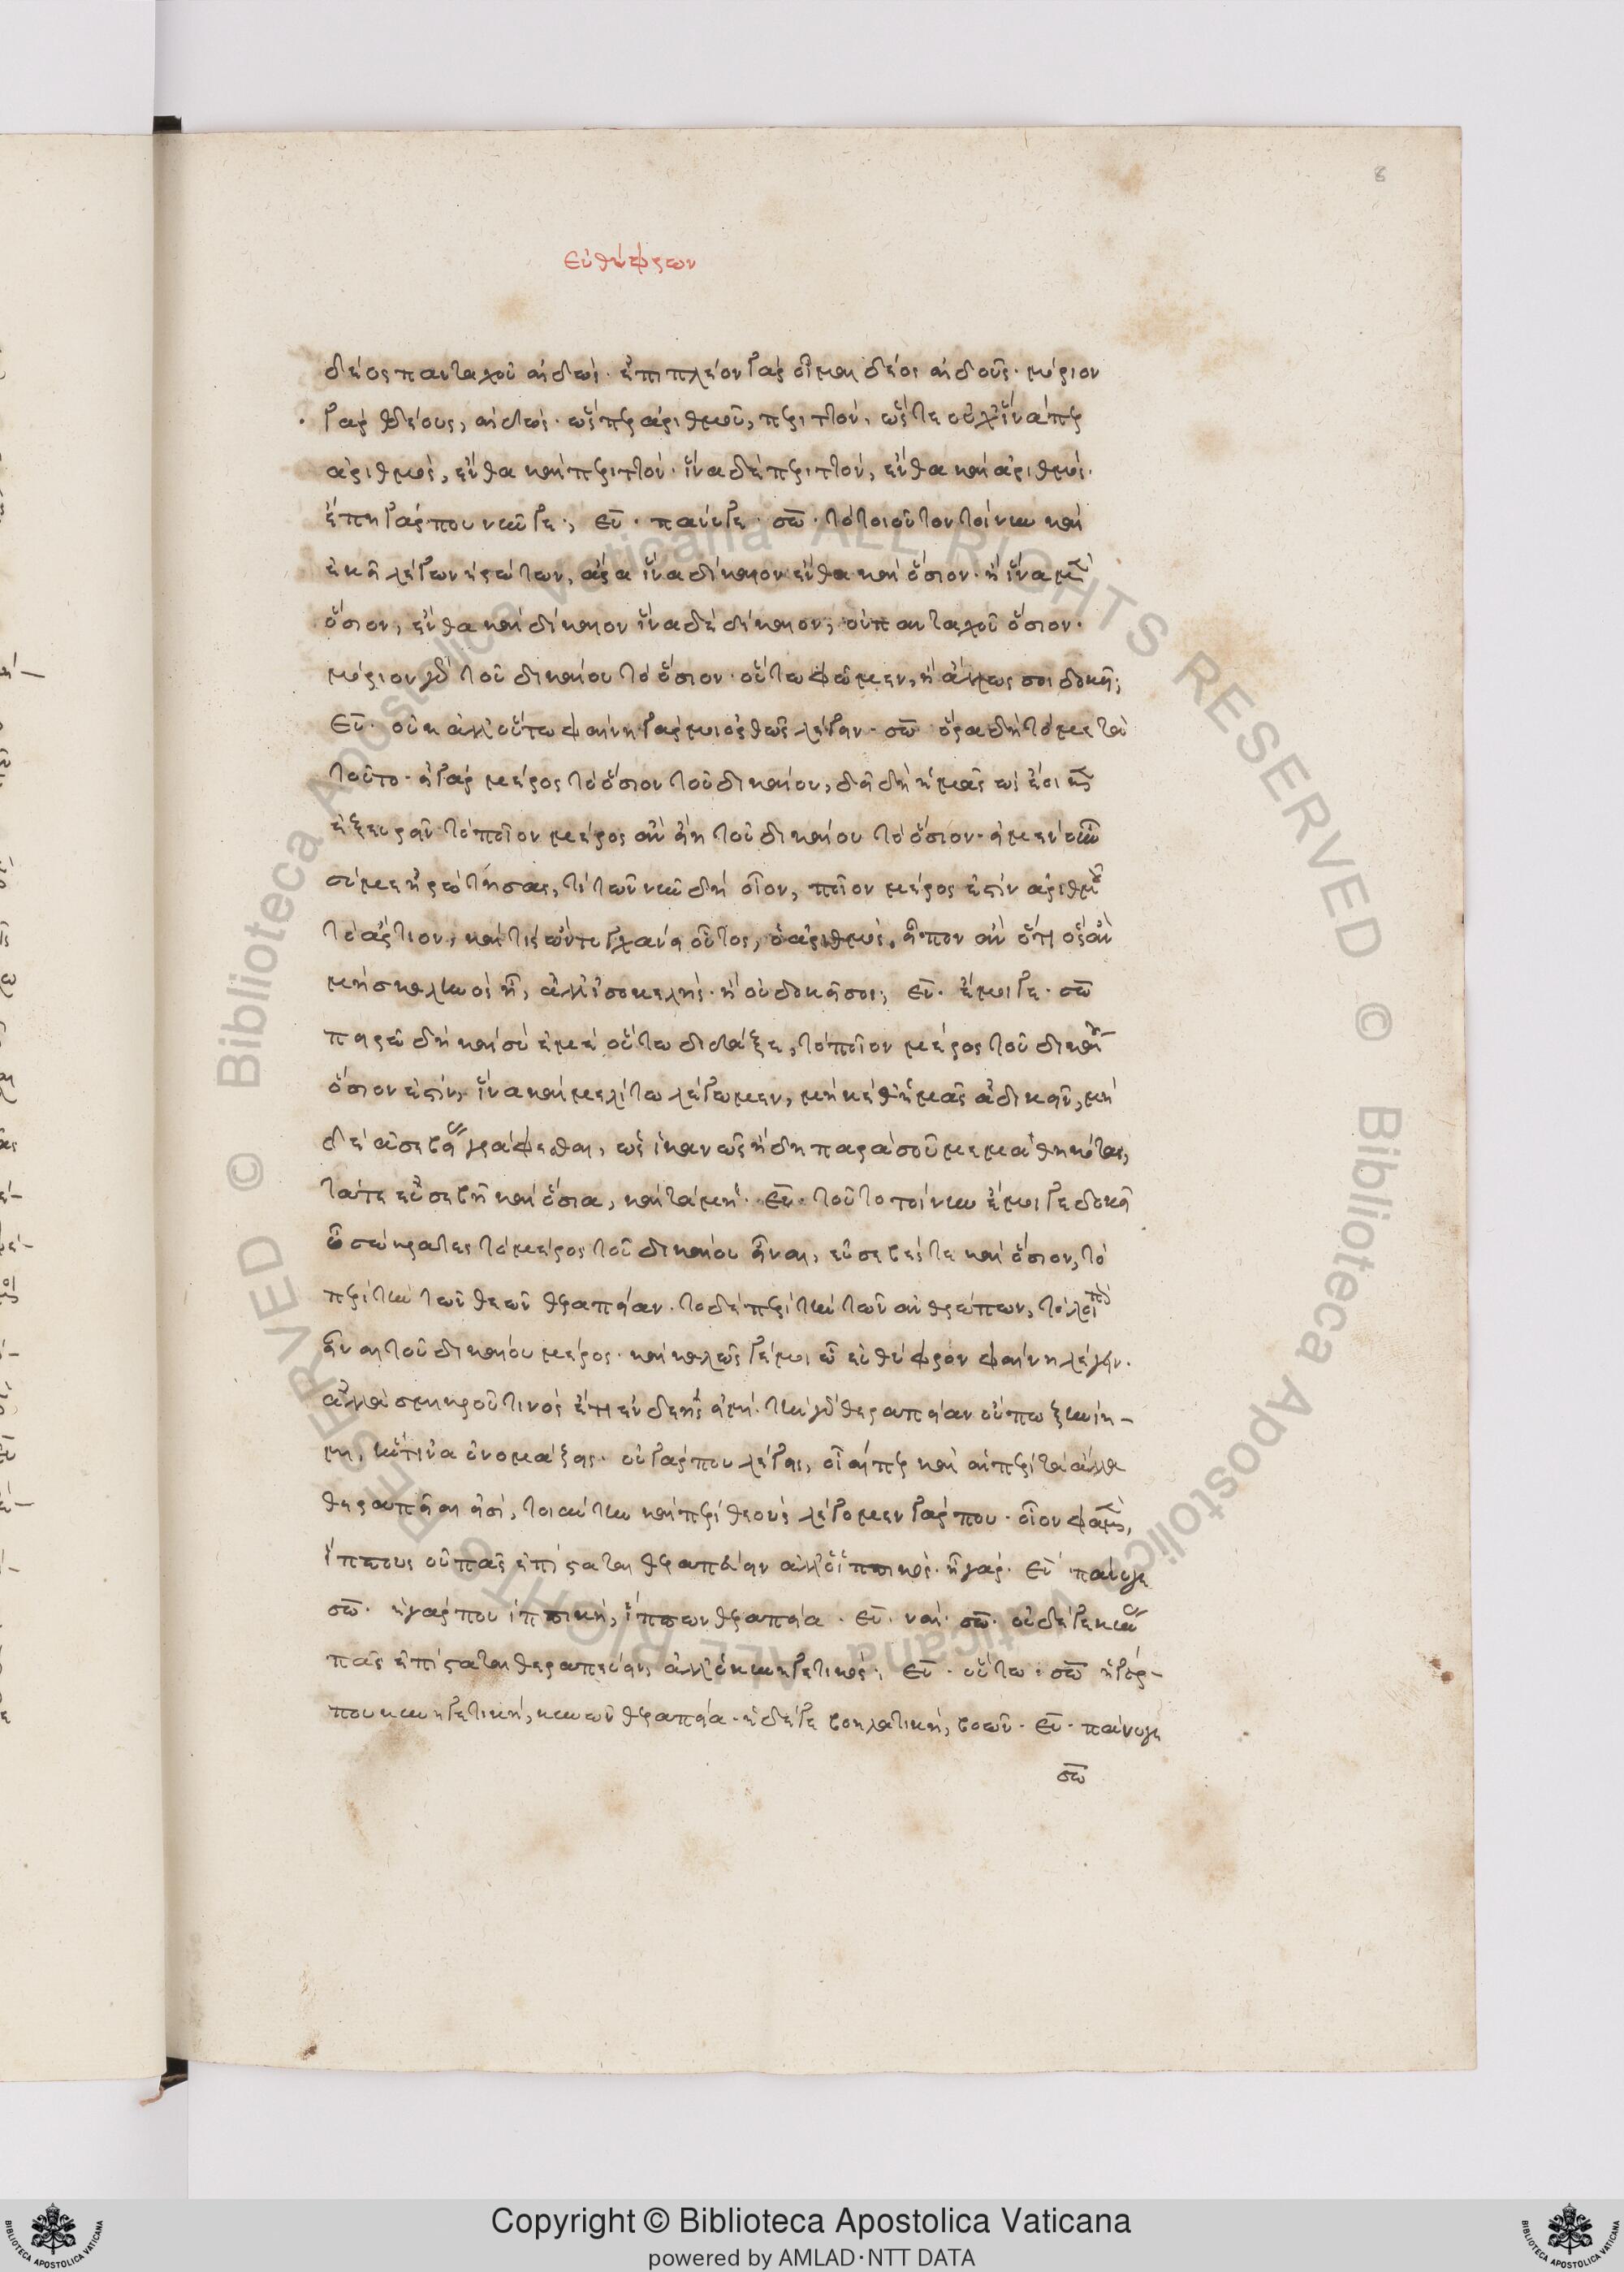 8
εὐθύφρων
δέος πανταχοῦ αἰδώς· ἐπιπλέον γὰρ οἶμαι δέος αἰδοῦς· μόριον
γὰρ δέους, αἰδώς· ὥσπερ ἀριθμοῦ, περιττόν, ὥστε οὐχ ἵνα περ
ἀριθμός, ἔνθα καὶ περιττόν· ἵνα δὲ περιττόν, ἔνθα καὶ ἀριθμός·
ἕπη γάρ που νῦν γε; εὐ· πάνυ γε· σω· τὸ τοιοῦτον τοίνυν καὶ
ἐκεῖ λέγων ἐρώτων, ἆρα ἵνα δίκαιον ἔνθα καὶ ὅσιον· ἢ ἵνα μὲν
ὅσιον, ἔνθα καὶ δίκαιον ἵνα δὲ δίκαιον, οὐ πανταχοῦ ὅσιον·
μόριον γὰρ τοῦ δικαίου τὸ ὅσιον· οὕτω φῶμεν, ἢ ἄλλως σοι δοκεῖ;
εὐ· οὐκ ἀλλ' οὕτω φαίνη γάρ μοι ὀρθῶς λέγειν· σω ὅρα δὴ τὸ μετὰ
τοῦτο· εἰ γὰρ μέρος τὸ ὅσιον τοῦ δικαίου, δεῖ δὴ ἡμᾶς ὡς ἔοικεν
ἐξευρεῖν τὸ ποῖον μέρος ἂν εἴη τοῦ δικαίου τὸ ὅσιον· εἰ μὲν οὖν
σύ με ἠρώτησας, τί τῶν νῦν δὴ οἷον, ποῖον μέρος ἐστὶν ἀριθμοῦ
τὸ ἄρτιον, καὶ τίς ὢν τυγχάνει οὗτος, ὁ ἀριθμός, εἶπον ἂν ὅτι ὃς ἂν
μὴ σκαληνὸς ἦ, ἀλλ' ἰσοσκελής· ἢ οὐ δοκεῖ σοι; εὐ· ἔμοιγε· σω
πειρῶ δὴ καὶ σὺ ἐμὲ οὕτω διδάξαι, τὸ ποῖον μέρος τοῦ δικαίου
ὅσιον ἐστίν, ἵνα καὶ μελίτω λέγωμεν, μηκέθ' ἡμᾶς ἀδικεῖν, μὴ
δὲ ἀσεβείας γράφεσθαι, ὡς ἱκανῶς ἤδη παρὰ σοῦ μεμαθηκότας,
τά τε εὐσεβῆ καὶ ὅσια, καὶ τὰ μή· εὐ· τοῦτο τοίνυν ἔμοιγε δοκεῖ
ὦ σώκρατες τὸ μέρος τοῦ δικαίου εἶναι, εὐσεβές τε καὶ ὅσιον, τὸ
περὶ τὴν τῶν θεῶν θεραπείαν· τὸ δὲ περὶ τὴν τῶν ἀνθρώπων, τὸ λοιπὸν
εἶναι τοῦ δικαίου μέρος· καὶ καλῶς γέ μοι ὦ εὐθύφρον φαίνη λέγειν·
ἀλλὰ σμικροῦ τινὸς ἔτι ἐνδεής εἰμι· τὴν γὰρ θεραπείαν οὔπω ξυνίη-
μι, ἥντινα ὀνομάζεις· οὐ γάρ που λέγεις, οἷαί περ καὶ αἱ περὶ τὰ ἄλλα
θεραπεῖαι εἰσὶ, τοιαύτην καὶ περὶ θεοὺς λέγομεν γάρ που· οἷον φαμὲν,
ἵππους οὐ πᾶς ἐπίσταται θεραπεύειν ἀλλ' ὁ ἱππικός· ἦ γάρ· εὐ πάνυ γε
σω· ἡ γάρ που ἱππική, ἵππων θεραπεία· εὐ· ναί· σω· οὐδέ γε κύνας
πᾶς ἐπίσταται θεραπεύειν, ἀλλ' ὁ κυνηγετικός; εὐ· οὕτω· σω ἡ γάρ-
που κυνηγετική, κυνῶν θεραπεία· ἡ δέ γε βοηλατική, βοῶν· εὐ· πάνυ γε
σω
Copyright © Biblioteca Apostolica Vaticana
powered by AMLAD·NTT DATA